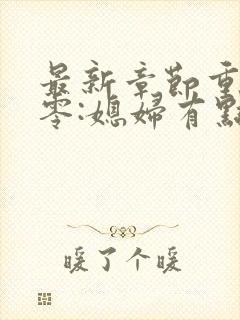 最新章節重
零:媳婦有點
暖了个暖